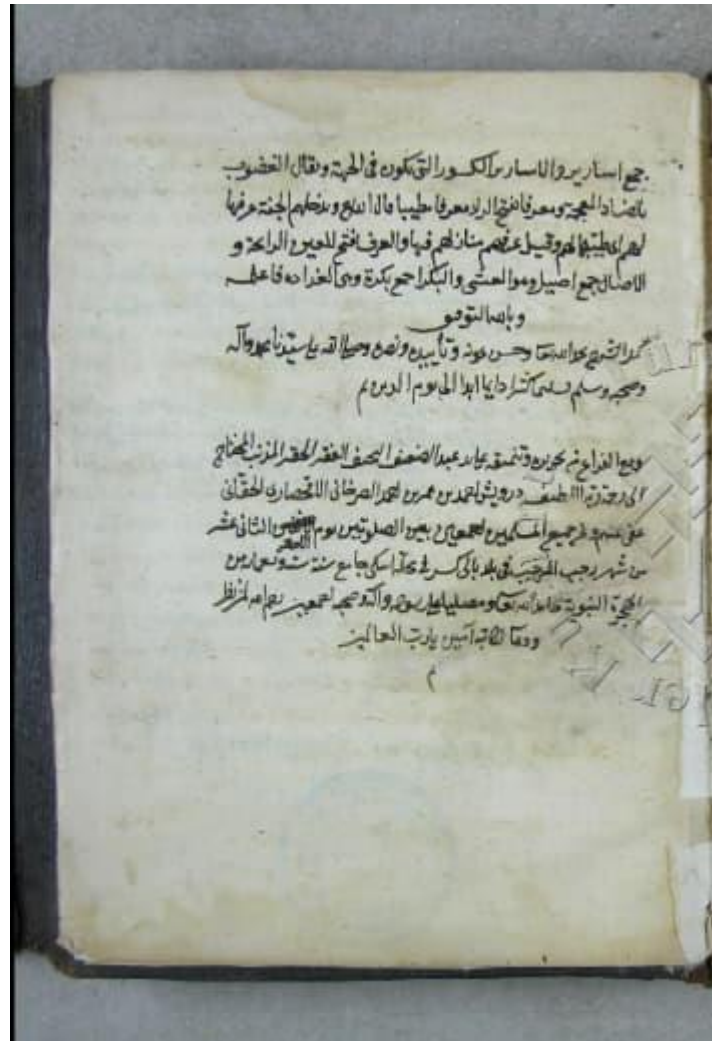 جمع اسارير والاسارير الكسور التى تكون فى الجبهة ويقال الغضوب
بالضاد المعجمة ومعرفا بفتح الراء معرفا طيبا قال الله تع ويدخلهم الجنة عرفها
لهم اى طيبها لهم وقيل عرفهم منازلهم فيها والعرف بفتح العين الرايحة و
الاصال جمع اصيل وهو العشى والبكر جمع بكرة وهى الغداة فاعلمه
وبالله التوفيق
كمل الشرح بحمد الله تعا وحسن عونه وتأييده ونصره وصلى الله على سيدنا محمد وآله
وصحبه وسلم تسليما كثيرا دايما ابدا الى يوم الدين م
وقع الفراغ من تحريره وتنميقه على يد عبد الضعيف النحيف الفقير الحقير المذنب المحتاج
الى رحمة ربه اللطيف درويش احمد بن عمر بن احمد
عفى عنهم وعن جميع المسلمين اجمعين بين الصلوتين يوم الخميس الثانى عشر
من شهر رجب المرجب فى بلد بالى كسر فى محلة اسكى جامع سنة ست وتعين من
الهجرة النبوية حامدا لله تعا ومصليا على رسوله وآله وصحبه اجمعين رحم الله لمن نظر
ودعا لكاتبه آمين يا رب العالمين
م